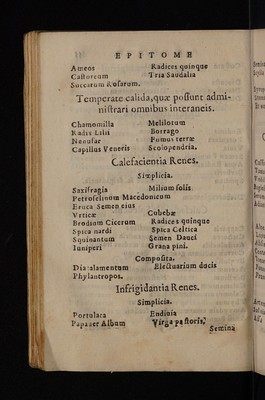 EPITOME
Ameos Radices quinque
Castoreum Tria Sandalia
Succarum Rosarum.
Temperate calida, quæ possunt admi-
nistrari omnibus interaneis.
Chamomilla Melilotum
Radix Lilii Borrago
Nenufar Fumus terræ
Capillus Veneris Scolopendria.
Calefacientia Renes.
Simplicia.
Saxifragia Milium solis
Petroselinum Macedonicum
Eruca Semen eius
Vrticæ Cubebæ
Brodium Cicerum Radices quinque
Spica nardi Spica Celtica
Squinantum Semen Dauci
Iuniperi Grana pini.
Composita.
Electuarium ducis
Phylantropos.
Infrigidantia Renes.
Simplicia.
Portulaca Endiuia
Papauer Album Virga pastoris,
Semina